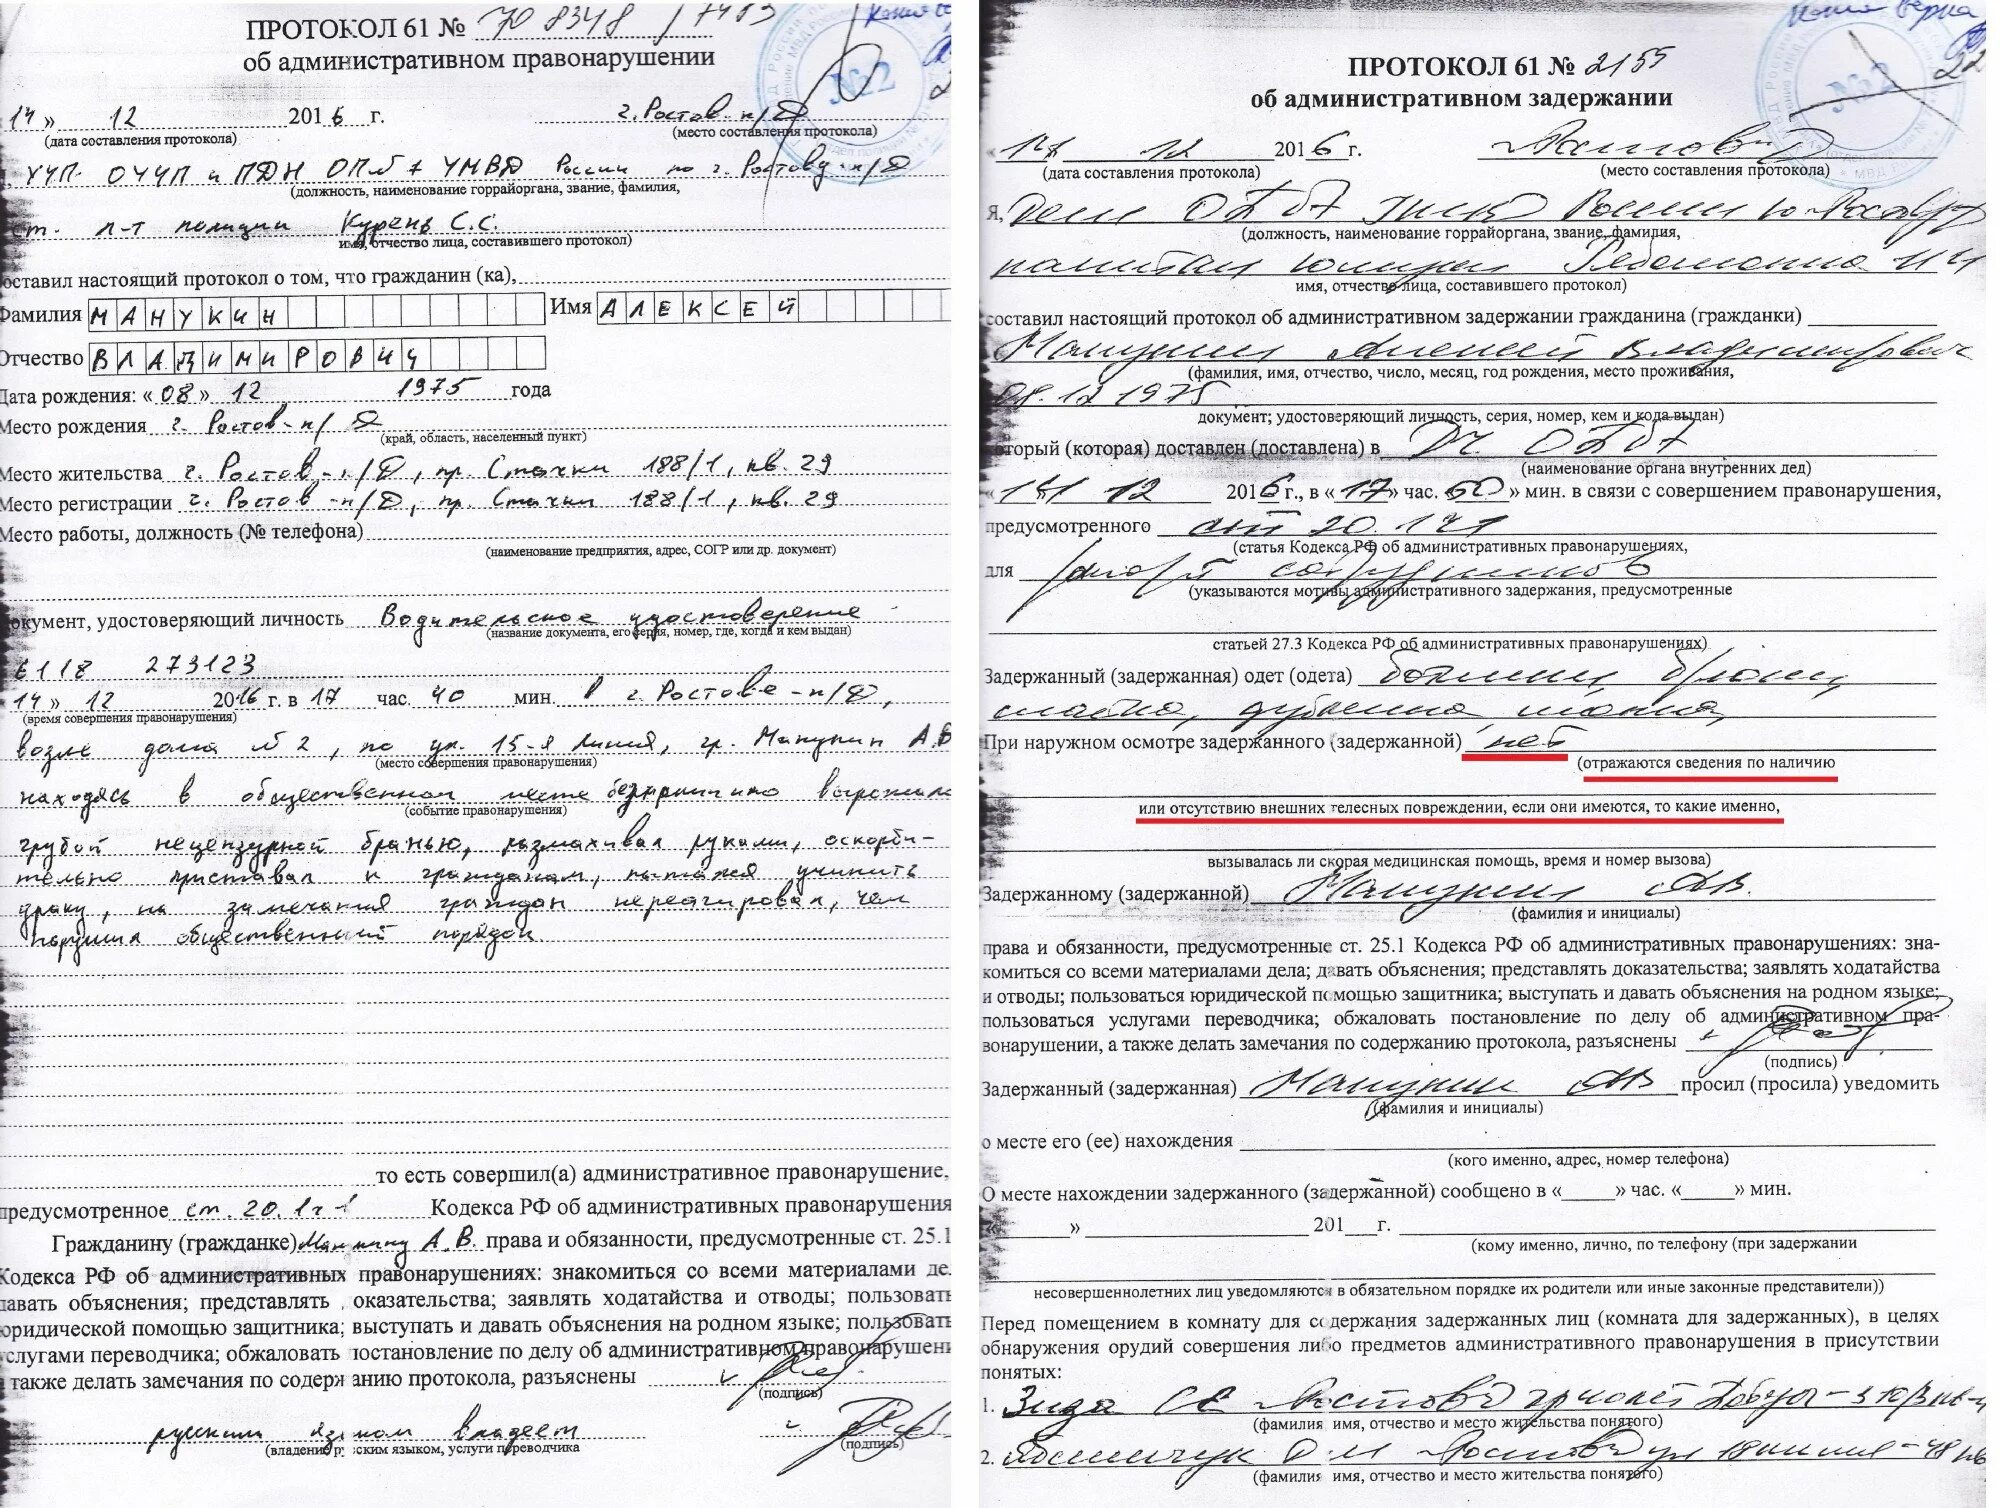 ПРОТОКОЛ 61 №
об административном правонарушении
14 » 12 2016 г. г. Ростов-н/Д
(дата составления протокола) (место составления протокола)
УУП ОУУП и ПДН ОП №7 УМВД России по г. Ростову-н/Д
(должность, наименование горрайоргана, звание, фамилия,
ст. л-т полиции Курень С.С.
имя, отчество лица, составившего протокол)
составил настоящий протокол о том, что гражданин (ка),
Фамилия МАНУКИН Имя АЛЕКСЕЙ
Отчество ВЛАДИМИРОВИЧ
Дата рождения: « 08 » 12 1975 года
Место рождения г. Ростов-н/Д
(край, область, населенный пункт)
Место жительства г. Ростов-н/Д, пр. Стачки 188/1, кв. 29
Место регистрации г. Ростов-н/Д, пр. Стачки 188/1, кв. 29
Место работы, должность (№ телефона)
(наименование предприятия, адрес, СОГР или др. документ)
документ, удостоверяющий личность Водительское удостоверение
(название документа, его серия, номер, где, когда и кем выдан)
6118 273123
14 » 12 2016 г. в 17 час. 40 мин. в г. Ростове-н/Д,
(время совершения правонарушения)
возле дома №2, по ул. 15-я Линия, гр. Манукин А.В
(место совершения правонарушения)
находясь в общественном месте
(событие правонарушения)
грубой нецензурной бранью, размахивал руками, оскорби-
тельно приставал к гражданам, пытался учинить
драку, на замечания граждан не реагировал, чем
нарушил общественный порядок
то есть совершил(а) административное правонарушение,
предусмотренное ст. 20.1 ч 1 Кодекса РФ об административных правонарушения
Гражданину (гражданке) Манукину А.В. права и обязанности, предусмотренные ст. 25.1
Кодекса РФ об административных правонарушениях: знакомиться со всеми материалами де
давать объяснения; представлять оказательства; заявлять ходатайства и отводы; пользовать
юридической помощью защитника; выступать и давать объяснения на родном языке; пользовать
услугами переводчика; обжаловать постановление по делу об административном правонарушени
также делать замечания по содерж анию протокола, разъяснены
(подпись)
русским языком владеет
(владение русским языком, услуги переводчика (подпись)
Копия верна
№2
ПРОТОКОЛ 61 № 2155
об административном задержании
14 12 2016 г. Ростов Д
(дата составления протокола) (место составления протокола)
Я, ОП №7 России Ростову
(должность, наименование горрайоргана, звание, фамилия,
капитан полиции
имя, отчество лица, составившего протокол)
составил настоящий протокол об административном задержании гражданина (гражданки)
Манукин Алексей Владимирович
(фамилия, имя, отчество, число, месяц, год рождения, место проживания,
08.12 1975
документ; удостоверяющий личность, серия, номер, кем и кода выдан)
который (которая) доставлен (доставлена) в ДЧ. ОП №7
(наименование органа внутренних дед)
« 14 12 2016 г., в « 17 » час. 50 » мин. в связи с совершением правонарушения,
предусмотренного ст 20.1 ч 1
(статья Кодекса РФ об административных правонарушениях,
для рапорт сотрудников
(указываются мотивы административного задержания, предусмотренные
статьей 27.3 Кодекса РФ об административных правонарушениях)
Задержанный (задержанная) одет (одета) ботинки, брюки,
дубленка, шапка,
При наружном осмотре задержанного (задержанной) нет
(отражаются сведения по наличию
или отсутствию внешних телесных повреждении, если они имеются, то какие именно,
вызывалась ли скорая медицинская помощь, время и номер вызова)
Задержанному (задержанной) Манукин АВ.
(фамилия и инициалы)
права и обязанности, предусмотренные ст. 25.1 Кодекса РФ об административных правонарушениях: зна-
комиться со всеми материалами дела; давать объяснения; представлять доказательства; заявлять ходатайства
и отводы; пользоваться юридической помощью защитника; выступать и давать объяснения на родном языке;
пользоваться услугами переводчика; обжаловать постановление по делу об административном пра-
вонарушении, а также делать замечания по содержанию протокола, разъяснены
(подпись)
Задержанный (задержанная) Манукин АВ просил (просила) уведомить
(фамилия и инициалы)
о месте его (ее) нахождения
(кого именно, адрес, номер телефона)
О месте нахождении задержанного (задержанной) сообщено в « » час. « » мин.
« » 201 г.
(кому именно, лично, по телефону (при задержании
несовершеннолетних лиц уведомляются в обязательном порядке их родители или иные законные представители))
Перед помещением в комнату для содержания задержанных лиц (комната для задержанных), в целях
обнаружения орудий совершения либо предметов административного правонарушения в присутствии
понятых:
1.
(фамилия имя, отчество и место жительства понятого)
2.
(фамилия имя, отчество и место жительства понятого)